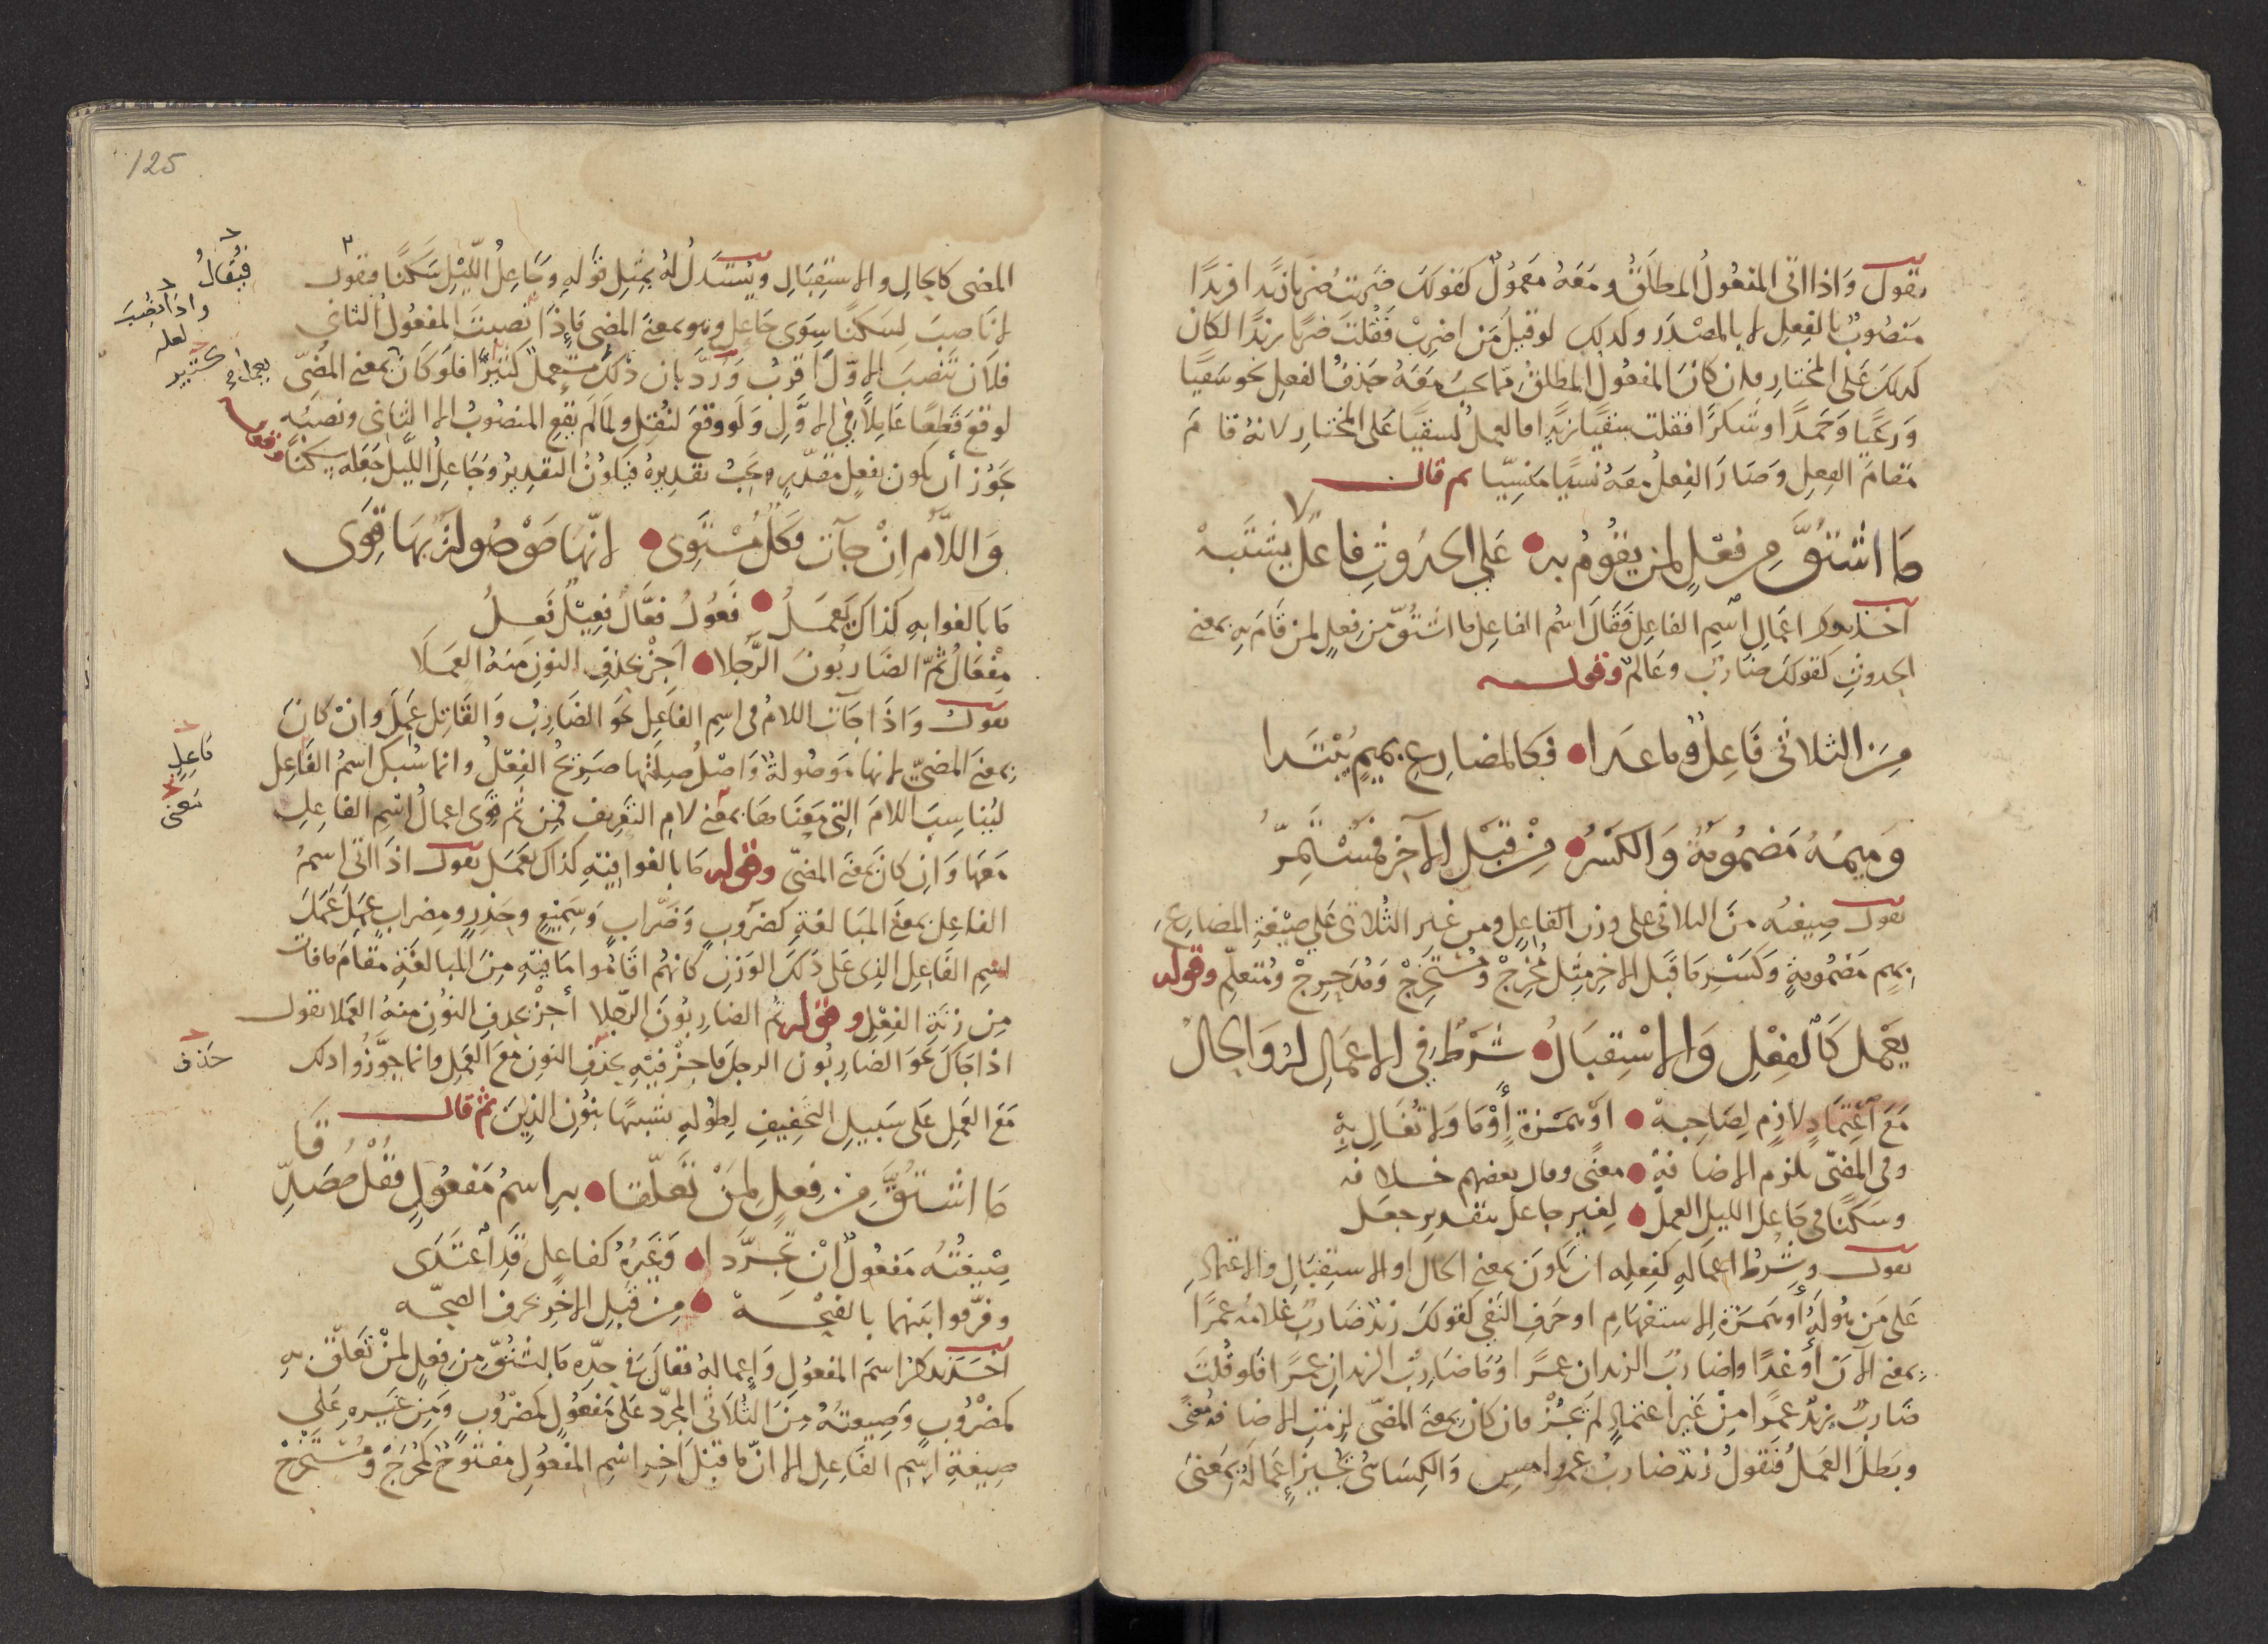 يقول واذا اتى المفعول المطلق ومعه معمول كقولك ضربت ضربا زيدا فزيدا
منصوب بالفعل لا بالمصدر وكذلك لو قيل من اضرب فقلت ضربا زيدا لكان
كذلك على المختار فان كان المفعول المطلق مما يجب معه حذف الفعل نحو سقيا
ورعيا وحمدا وشكرا فقلت سقيا زيدا فالعمل لسقيا على المختار لانه قام
مقام الفعل وصار الفعل معه نسيا منسيا ثم قال
مَا اشْتُقَّ مِن فعْلٍ لمن يقُومُ به على الحُدُوثِ فاعلٌ يشتبهْ
اخذ يذكر اعمال اسم الفاعل فقال اسم الفاعل ما اشتق من فعل لمن قام به بمعنى
الحدوث كقولك ضارب وعالم وقوله
مِنَ الثلاثي فَاعِلٌ وما عدا فكالمضارعِ بميمٍ يُبْتَدا
وَمِيمُهُ مَضمُومَةٌ وَالكَسْرُ مِنْ قبْلِ الآخِرِ فمُسْتَمِرُّ
يقول صيغته من الثلاثى على وزن الفاعل ومن غير الثلاثى على صيغة المضارع
بميم مضمومة وكسر ما قبل الاخر مثل مُخْرِجٌ ومُسْتَخْرِجٌ ومُدَحرِجٌ ومُتعلّم وقوله
يَعْمَل كَالفِعْلِ وَالاسْتِقبَالُ شَرْطٌ فِي الاعمَالِ لهُ وَالحالُ
مَعَ اعْتِمَادٍ لازِمٍ لِصَاحِبهْ اوْ همْزةٍ أوْ مَا وَلا تُغَالِ بِهِ
وفى المضىّ يلزم الاضافهْ معنًى وقال بعضهم خلافه
وسَكَنًا فى جَاعل الليلِ العملْ لِغير جاعل بتقدير جعل
يقول وشرط اعماله كفعله ان يكون بمعنى الحال او الاستقبال والاعتماد
على من هُو لَهُ أو همزة الاستفهام او حرف النفى كقولك زيد ضارب غلامه عمرا
بمعنى الآن أو غدا واضارب الزيدان عمرا أو ما ضارب الزيدان عمرا فلو قلت
ضارب زيد عمرا من غير اعتماد لم يجز فان كان بمعنى المضى لزمت الاضافة معنى
وبطل العمل فتقول زيد ضارب عمرو امس والكسائى يجيز اعماله بمعنى
125
المضى كالحال والاستقبال ويستدل له بمثل قوله وجاعل الليل سكنا فيقول
لا ناصب لسكنا سوى جاعل وهو بمعنى المضى فاذا نصبت المفعول الثانى
فلان تنصب الاوّل أقرب ورُدَّ بان ذلك مستعمل كثيرا فلو كان بمعنى المضىّ
لوقع قطعا عاملا فى الاوّل ولو وقع لنقل ولما لم يقع المنصوب الا الثانى ونصبُه
يجوز أن يكون بفعل مقدّر وجب تقديره فيكون التقدير وجاعل الليل جعله سكنا وقوله
وَاللَّام اِنْ جآت فكلٌ مُسْتَوِى لانّها مَوْصُولةٌ بهَا قَوِى
مَا بَالغوا بهِ كذاك يَعمَلُ فَعُولُ فعَّالُ فعِيْلُ فَعِلُ
مِفْعَالُ ثمّ الضَّاربُونَ الرَّجُلا اجزْ بحذفِ النونِ مِنهُ العمَلا
يقول وَاذَا جآت اللام فى اسم الفاعل نحو الضارب والقاتل عَمِل وان كان
بمعنى المضىّ لانها موصولة واصل صلتها صريح الفعل وانما سُبك اسم الفاعل
ليناسب اللام التى معناها بمعنى لام التعريف فمن ثم قوى اعمال اسم الفاعل
معها وان كان بمعنى المضى وقوله ما بالغوا فيه كذاك يعمل يقول اذا اتى اسم
الفاعل بمعنى المبالغة كضروب وضراب وسميع وحذر ومضراب عمِل عمَلَ
اسم الفاعل الذى على ذلك الوزن كانهم اقاموا ما فيه من المبالغة مقام ما فات
من زنة الفعل وقوله ثم الضاربون الرجلا أجز بحذف النون منه العملا يقول
اذا جاك نحو الضاربون الرجل فاجز فيه بحذف النون مع العمل وانما جوّزوا ذلك
مع العمل على سبيل التخفيف لطوله تشبيها بنون الذين ثم قال
مَا اشْتُقَّ مِن فِعلٍ لِمَنْ تَعَلّقا به اسمُ مَفعُولٍ فقُلْ مُصَدِّقا
صِيغَتُهُ مَفعُولٌ انْ تجرَّدا وَغَيرُهُ كفاعِلٍ قدِ اعتَدَى
وفرّقوا بينهما بالفتحهْ مِن قبلِ الاخِر بحرف الصحّه
اخذ يذكر اسم المفعول واعماله فقال فى حدّه ما اشتق من فعل لمن تعلّق به
كمضروب وصيغته من الثلاثى المجرّد على مفعول كمضروب ومن غيره على
صيغة اسم الفاعل الا انّ ما قبل اخر اسم المفعول مفتوح كمُخْرَجٌ ومُسْتَخْرَجٌ
فيُقالُ
واذا نُصِبَ
لعله
كثير
فاعِلٍ
يعنى
حذف